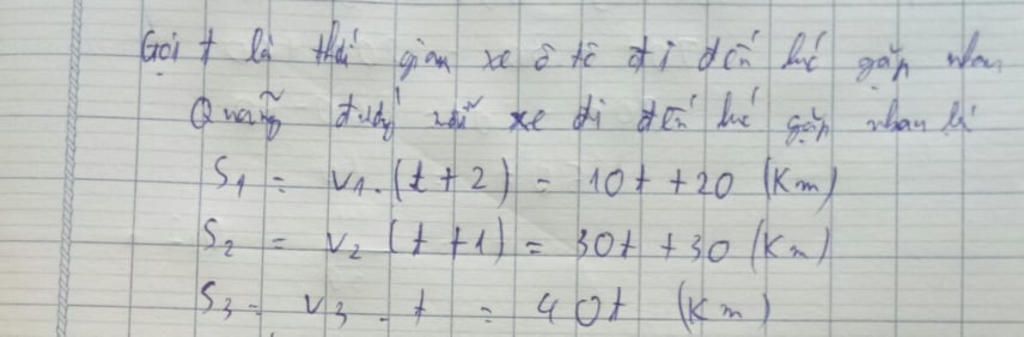 Gọi t là thời gian xe ô tô đi đến lúc gặp nhau
Quãng đường mỗi xe đi đến lúc gặp nhau là
S₁ = V₁.(t+2) = 10t +20 (Km)
S₂ = V₂ (t+1) = 30t +30 (Km)
S₃ = V₃ . t = 40t (Km)